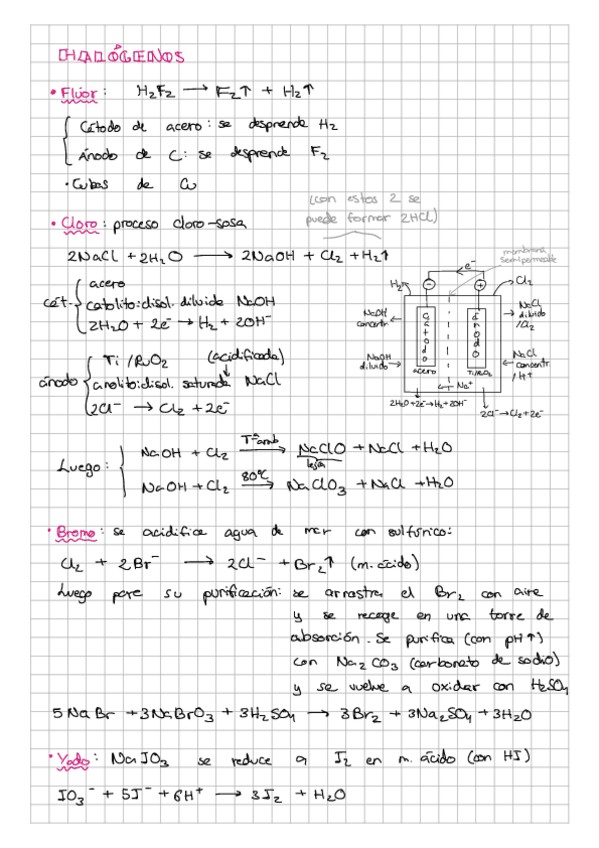 HALÓGENOS
• Flúor: H₂F₂ → F₂↑ + H₂↑
Cátodo de acero: se desprende H₂
Ánodo de C: se desprende F₂
• Cubas de Cu
(con estos 2 se
puede formar 2HCl)
• Cloro: proceso cloro-sosa
2NaCl + 2H₂O → 2NaOH + Cl₂ + H₂↑
cát.
acero
catolito: disol. diluida NaOH
2H₂O + 2e⁻ → H₂ + 2OH⁻
ánodo
Ti/RuO₂ (acidificada)
anolito: disol. saturada NaCl
2Cl⁻ → Cl₂ + 2e⁻
membrana
semipermeable
e⁻
H₂
−
+
Cl₂
NaOH
concentr
NaOH
diluido
cátodo
acero
ánodo
Ti/RuO₂
Na⁺
NaCl
diluido
/Cl₂
NaCl
concentr
/H⁺
2H₂O+2e⁻→H₂+2OH⁻
2Cl⁻→Cl₂+2e⁻
Luego:
NaOH + Cl₂ —Tªamb→ NaClO + NaCl + H₂O
lejía
NaOH + Cl₂ —80ºC→ NaClO₃ + NaCl + H₂O
• Bromo: se acidifica agua de mar con sulfúrico:
Cl₂ + 2Br⁻ → 2Cl⁻ + Br₂↑ (m. ácido)
Luego para su purificación: se arrastra el Br₂ con aire
y se recoge en una torre de
absorción. Se purifica (con pH↑)
con Na₂CO₃ (carbonato de sodio)
y se vuelve a oxidar con H₂SO₄
5NaBr + 3NaBrO₃ + 3H₂SO₄ → 3Br₂ + 3Na₂SO₄ + 3H₂O
• Yodo: NaIO₃ se reduce a I₂ en m. ácido (con HI)
IO₃⁻ + 5I⁻ + 6H⁺ → 3I₂ + H₂O